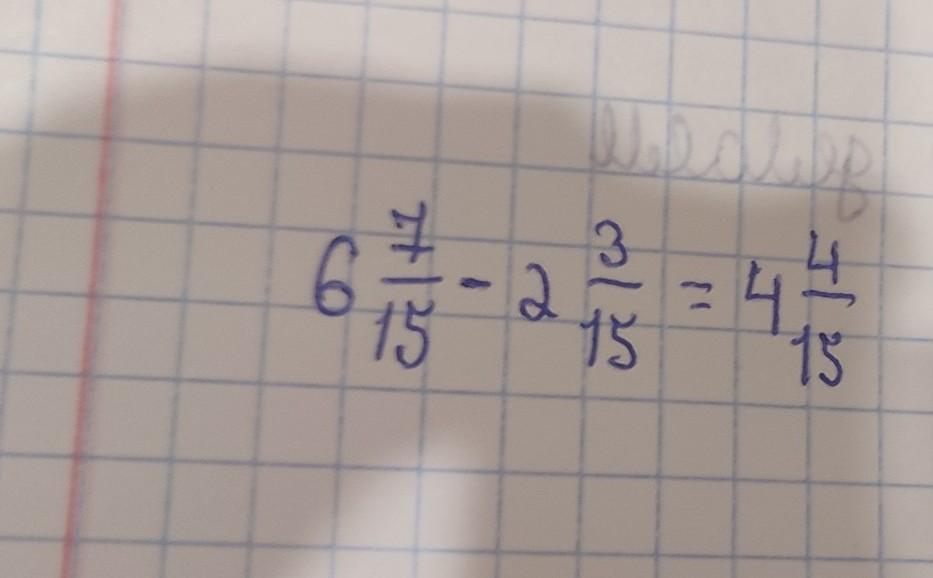 6 7/15 - 2 3/15 = 4 4/15